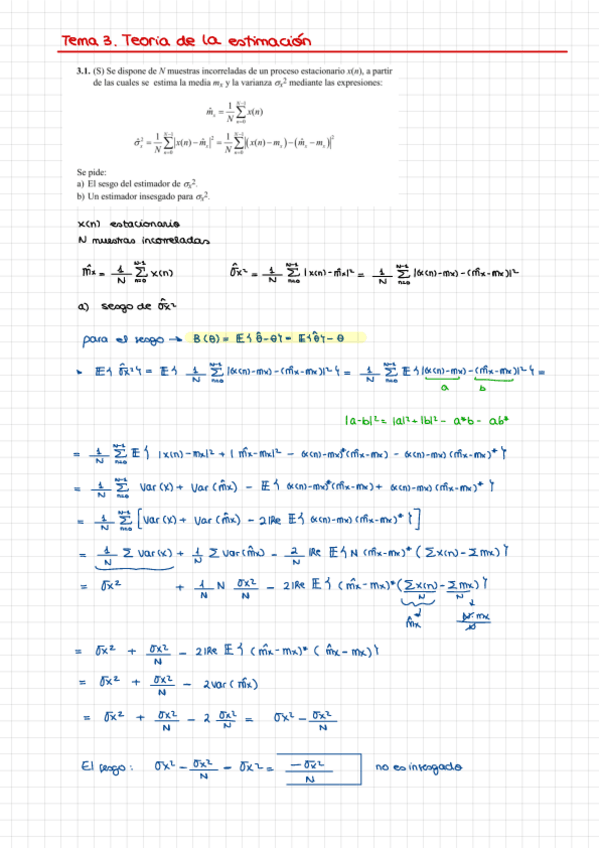 Tema 3. Teoria de la estimación
3.1. (S) Se dispone de N muestras incorreladas de un proceso estacionario x(n), a partir
de las cuales se estima la media mₓ y la varianza σₓ² mediante las expresiones:
m̂ₓ = 1/N ∑_{n=0}^{N-1} x(n)
σ̂ₓ² = 1/N ∑_{n=0}^{N-1} |x(n) − m̂ₓ|² = 1/N ∑_{n=0}^{N-1} |(x(n) − mₓ) − (m̂ₓ − mₓ)|²
Se pide:
a) El sesgo del estimador de σₓ².
b) Un estimador insesgado para σₓ².
x(n) estacionario
N muestras incorreladas
m̂x = 1/N ∑_{n=0}^{N-1} x(n)   σ̂x² = 1/N ∑_{n=0}^{N-1} |x(n) − m̂x|² = 1/N ∑_{n=0}^{N-1} |(x(n) − mx) − (m̂x − mx)|²
a) sesgo de σ̂x²
para el sesgo → B(θ) = E{θ̂ − θ} = E{θ̂} − θ
E{σ̂x²} = E{1/N ∑_{n=0}^{N-1} |(x(n) − mx) − (m̂x − mx)|²} = 1/N ∑_{n=0}^{N-1} E{|(x(n) − mx) − (m̂x − mx)|²} =
a b
|a−b|² = |a|² + |b|² − a*b − ab*
= 1/N ∑_{n=0}^{N-1} E{|x(n) − mx|² + |m̂x − mx|² − (x(n) − mx)*(m̂x − mx) − (x(n) − mx)(m̂x − mx)*}
= 1/N ∑_{n=0}^{N-1} Var(x) + Var(m̂x) − E{(x(n) − mx)*(m̂x − mx) + (x(n) − mx)(m̂x − mx)*}
= 1/N ∑_{n=0}^{N-1} [Var(x) + Var(m̂x) − 2 Re E{(x(n) − mx)(m̂x − mx)*}]
= 1/N ∑ Var(x) + 1/N ∑ Var(m̂x) − 2/N Re E{N (m̂x − mx)* (∑x(n) − ∑mx)}
= σx² + 1/N N σx²/N − 2 Re E{(m̂x − mx)* (∑x(n)/N − ∑mx/N)}
m̂x N·mx/N
= σx² + σx²/N − 2 Re E{(m̂x − mx)* (m̂x − mx)}
= σx² + σx²/N − 2 var(m̂x)
= σx² + σx²/N − 2 σx²/N = σx² − σx²/N
El sesgo: σx² − σx²/N − σx² = −σx²/N no es insesgado